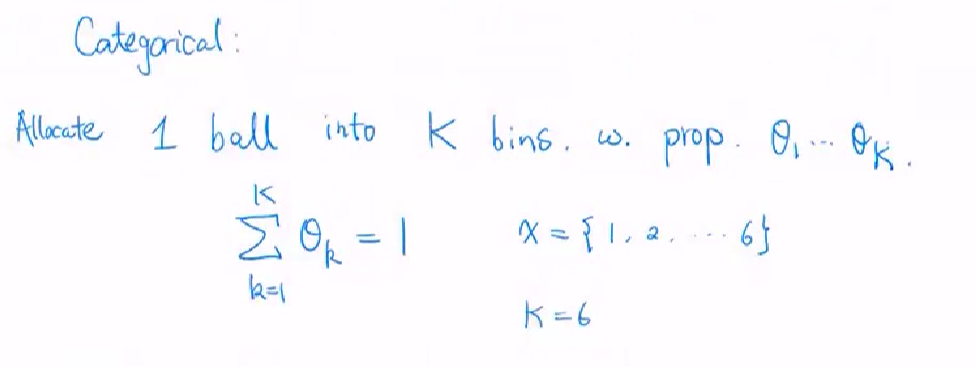 Categorical:
Allocate 1 ball into K bins. w. prop. θ₁ ... θ_K.
K
∑ θ_k = 1    X = {1, 2, ... 6}
k=1
K = 6